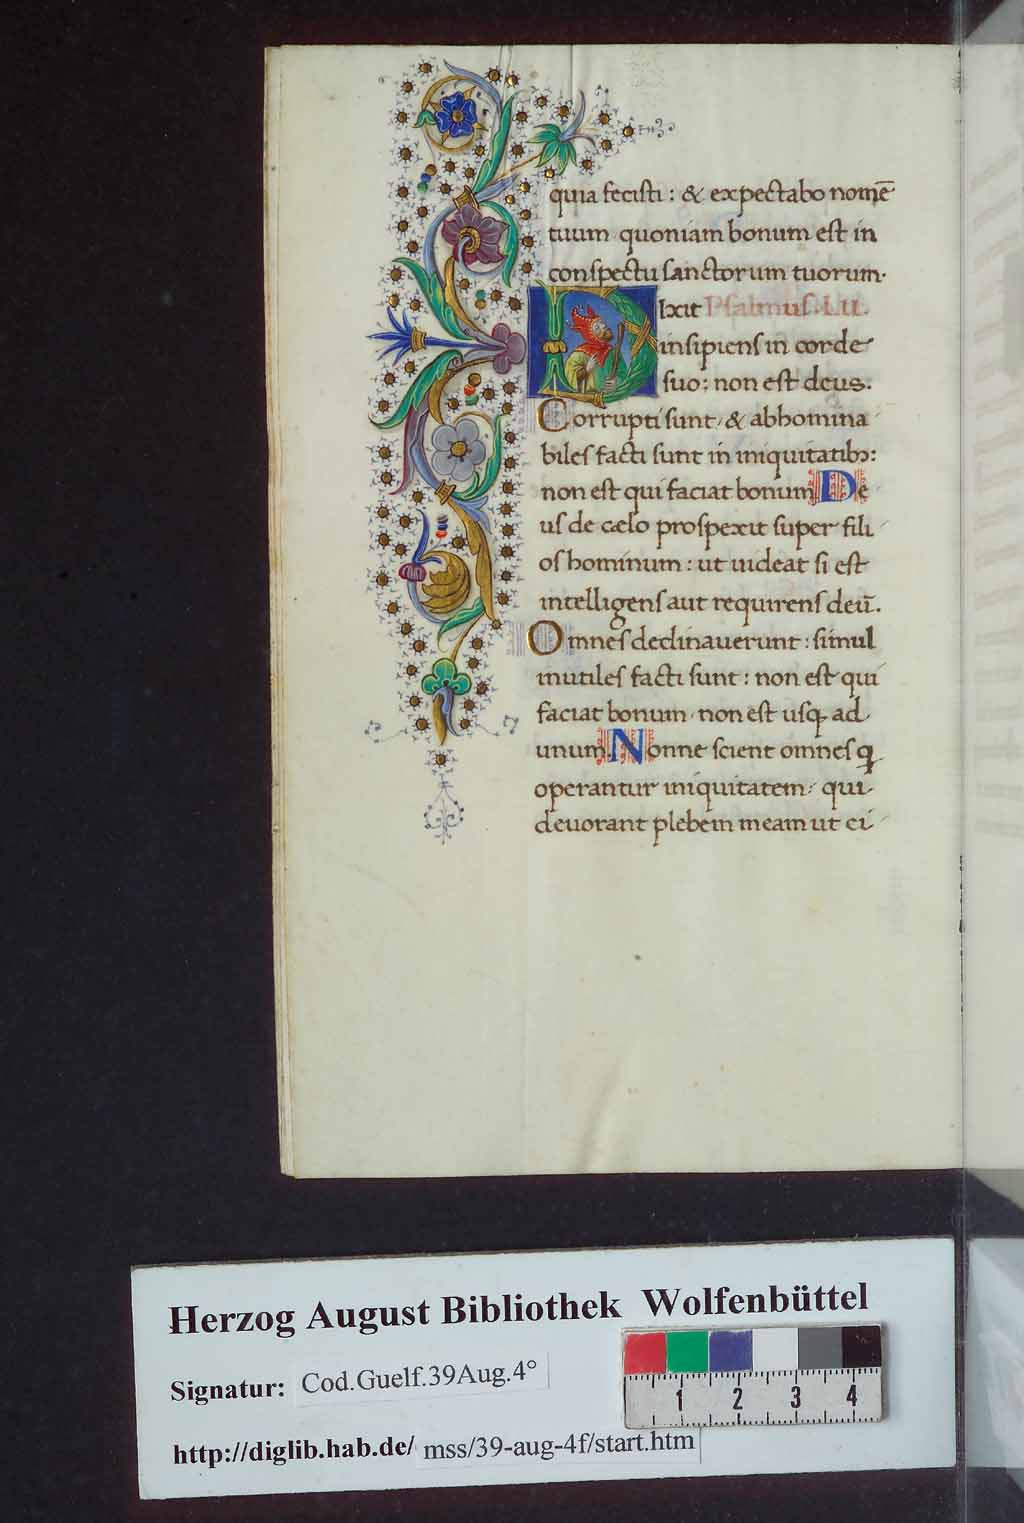 quia fecisti: & expectabo nomē
tuum quoniam bonum est in
conspectu sanctorum tuorum.
Dixit Psalmus. LII.
insipiens in corde
suo: non est deus.
Corrupti sunt, & abhomina
biles facti sunt in iniquitatibꝫ:
non est qui faciat bonum De
us de cælo prospexit super fili
os hominum: ut uideat si est
intelligens aut requirens deū.
Omnes declinauerunt: simul
inutiles facti sunt: non est qui
faciat bonum. non est usqꝫ ad
unum. Nonne scient omnes q̃
operantur iniquitatem: qui
deuorant plebem meam ut ci
Herzog August Bibliothek Wolfenbüttel
Signatur: Cod.Guelf.39Aug.4°
1 2 3 4
http://diglib.hab.de/ mss/39-aug-4f/start.htm